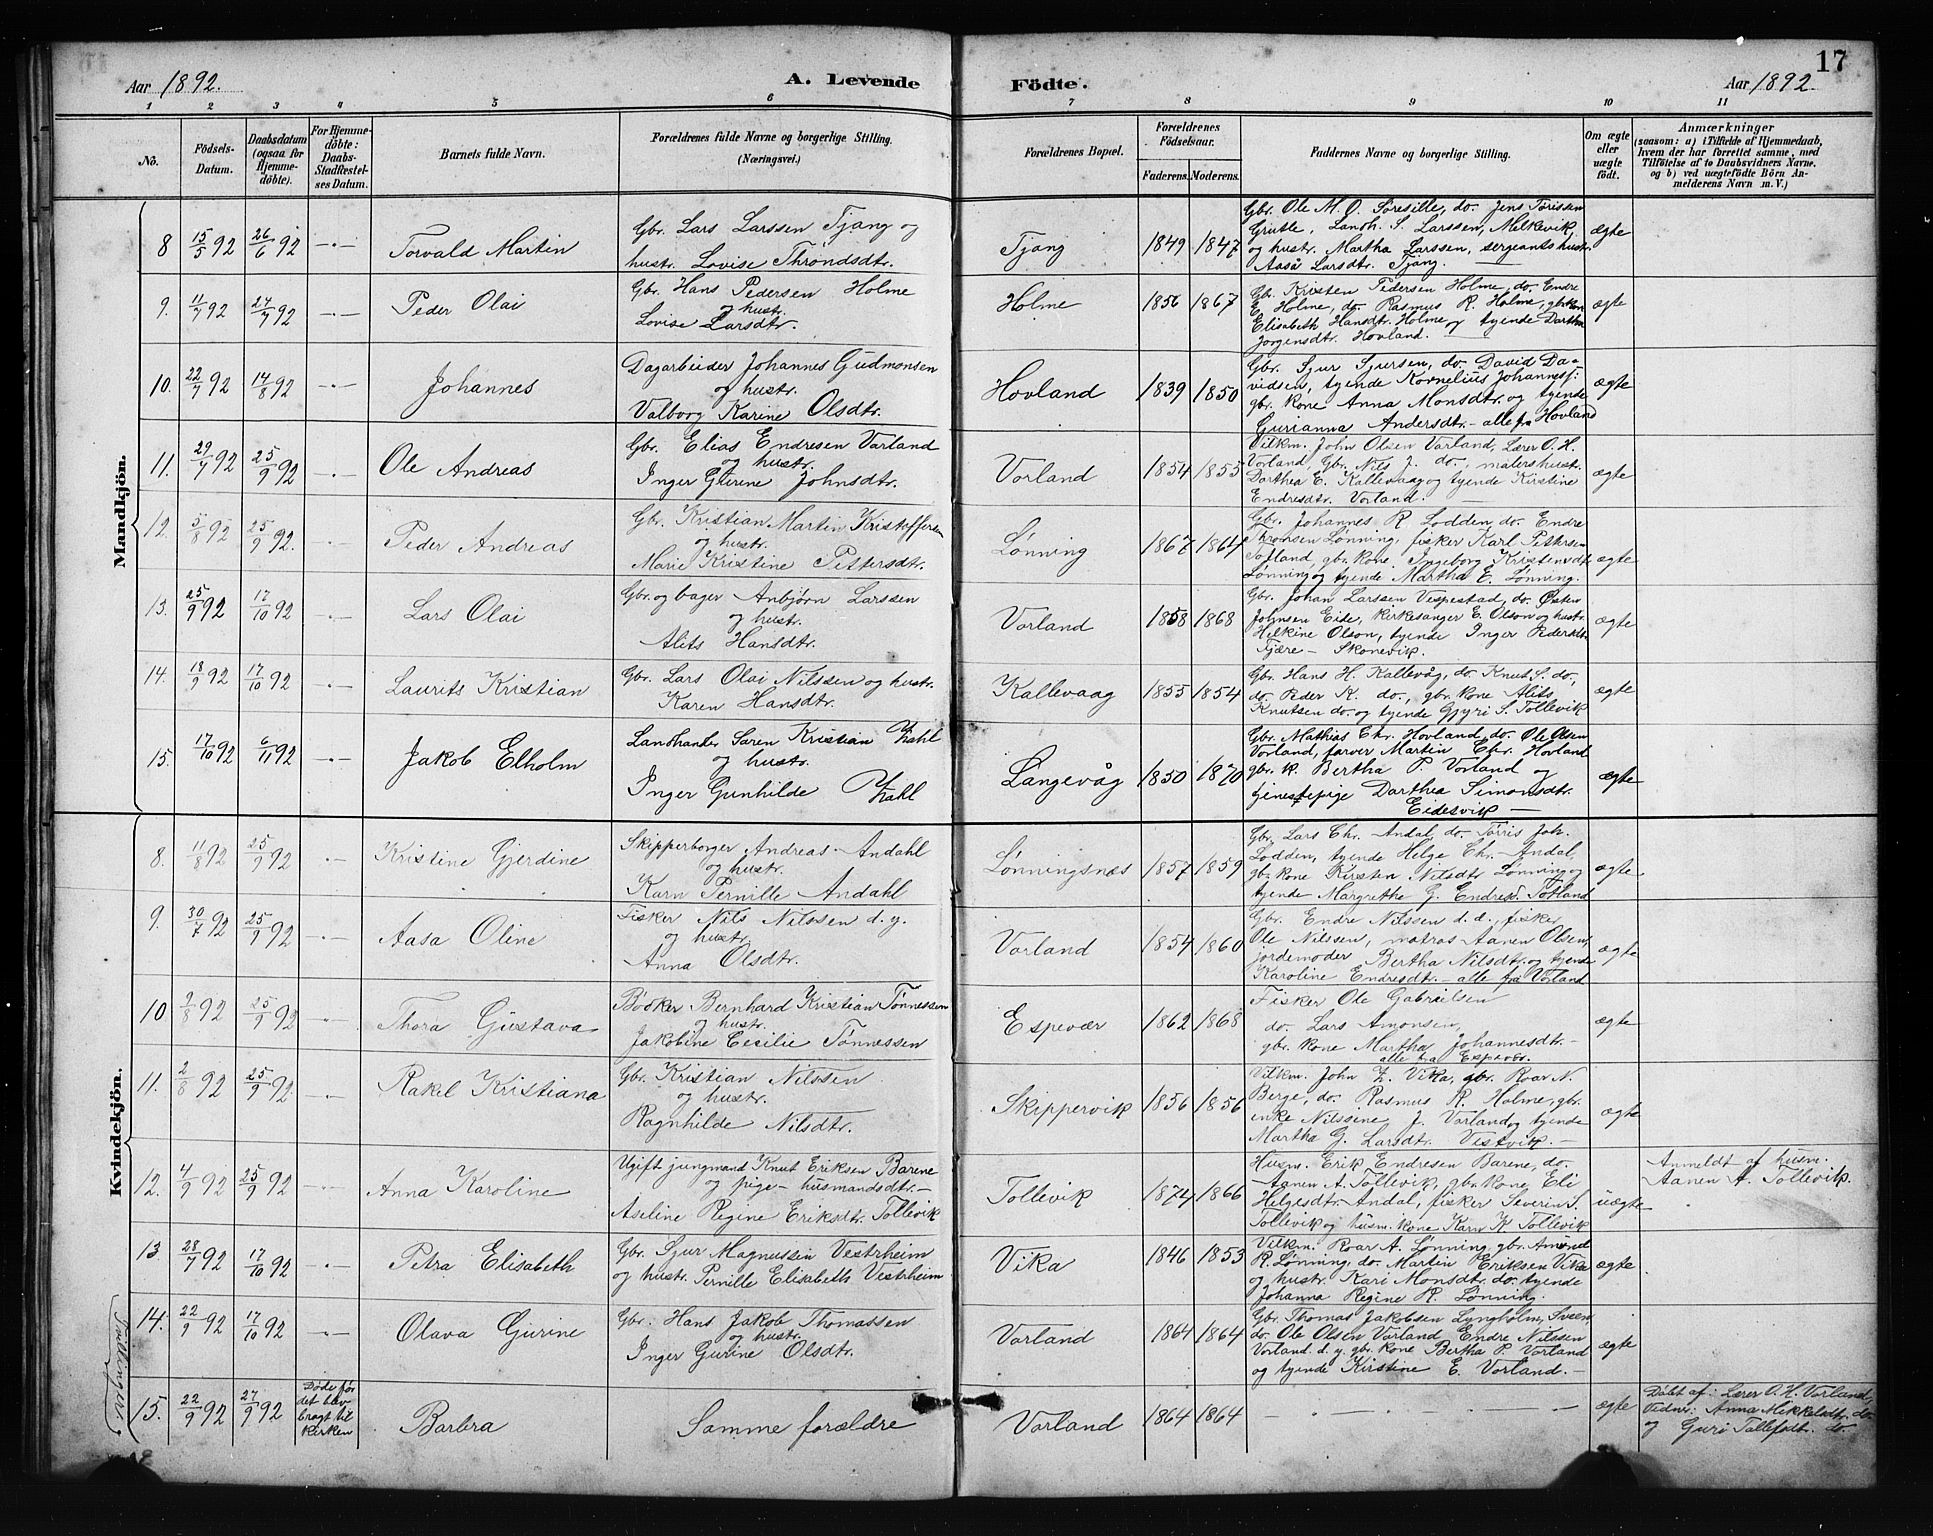 Aar 1892.
A. Levende
Födte.
Aar 1892.
17
1 2 3 4 5 6 7 8 9 10 11
No.
Födsels-
Datum.
Daabsdatum
(ogsaa for
Hjemme-
döbte).
For Hjemme-
döbte:
Daabs-
Stadfæstel-
ses Datum.
Barnets fulde Navn.
Forældrenes fulde Navne og borgerlige Stilling.
(Næringsvei.)
Forældrenes Bopæl.
Forældrenes
Födselsaar.
Faderens. Moderens.
Faddernes Navne og borgerlige Stilling.
Om ægte
eller
uægte
födt.
Anmærkninger
(saasom: a) i Tilfælde af Hjemmedaab,
hvem der har forrettet samme, med
Tilföielse af to Daabsvidners Navne.
og b) ved uægtefödte Börn An-
melderens Navn m. V.)
Mandkjön.
8 15/5 92 26/6 92 -"- Torvald Martin
Gbr. Lars Larssen Tjang og
hustr. Lovise Throndsdtr.
Tjang 1849 1847
Gbr. Ole M. O. Søresille, do. Jens Tørissen
Grutle, Landh. S. Larssen, Melkevik,
og hustr. Martha Larssen, sergeants hustr.
Aasa Larsdtr. Tjang.
ægte
9. 11/7 92 24/7 92 -"- Peder Olai
Gbr. Hans Pedersen Holme
og hustr.
Lovise Larsdtr.
Holme 1856 1867
Gb. Kristen Pedersen Holme, do. Endre
E. Holme, do. Rasmus R. Holme, gbrkon
Elisabeth Hansdtr. Holme og tyende Dorthea
Jorgensdtr. Hovland.
ægte
10. 22/7 92 14/8 92 -"- Johannes
Dagarbeider Johannes Gudmonsen
og hustr.
Valborg Karine Olsdtr.
Hovland 1839 1850
Gbr. Sjur Sjursen, do. David Da-
vidsen, tyende Kornelius Johannesf:
gbr. kone Anna Monsdtr. og tyende
Gurianna Andersdtr. - alle fra Hovland
ægte
11. 29/7 92 25/9 92 -"- Ole Andreas
Gbr. Elias Endresen Vorland
og hustr.
Inger Gurine Johnsdtr.
Vorland 1854 1855
Vilkm. John Olsen Vorland, Lærer O. H.
Vorland, Gbr. Nils J. do., malershust.
Dorthea E. Kallevaag og tyende Kirstine
Endresdtr. Vorland.
ægte
12. 5/8 92 25/9 92. -"- Peder Andreas
Gbr. Kristian Martin Kristoffersen
og hustr.
Marie Kristine Pettersdtr.
Lønning 1867 1864
Gbr. Johannes R. Lodden, do. Endre
Thronsen Lønning, fisker Karl Petersen
Totland, gbr. kone Ingeborg Kristensdtr.
Lønning og tyende Martha E. Lønning.
ægte
13. 25/9 92 17/10 92 -"- Lars Olai
Gbr. og bager Anbjørn Larssen
og hustr.
Alits Hansdtr.
Vorland 1858 1868
Gbr. Johan Larssen Vespestad, do. Østen
Johnsen Eide, kirkesanger E. Olson og hustr.
Helkine Olson, tyende Inger Pedersdt.
Tjære - Skonevik.
ægte
14. 18/9 92 17/10 92 -"- Laurits Kristian
Gbr. Lars Olai Nilssen og hustr.
Karen Hansdtr.
Kallevaag 1855 1854
Gbr. Hans H. Kallevåg, do. Knut S. do,
do. Peder K. do, gbr. kone Alits
Knutsen do. og tyende Gjyri S. Tollevik
ægte
15. 17/10 92 6/11 92 -"- Jakob Elholm
Landhandler Søren Kristian Zahl
og hustr.
Inger Gunhilde Zahl
Langevåg 1850 1870
Gbr. Mathias Chr. Hovland, do. Ole Olsen
Vorland, farver Martin Chr. Hovland
gbr. k. Bertha P. Vorland og
tjenestepige Dorthea Simonsdtr.
Eidesvik
ægte
Kvindekjön.
8. 11/8 92 25/9 92 -"- Kristine Gjerdine
Skipperborger Andreas Andahl
og hustr.
Karn Pernille Andahl
Lønningsnæs 1857 1859
Gbr. Lars Chr. Andal, do. Tørris Joh.
Lodden, tyende Helge Chr. Andal,
gbr. kone Kirsten Nilsdtr Lønning og
tyende Margrethe G. Endresd. Totland
ægte
9. 30/7 92 25/9 92 -"- Aasa Oline
Fisker Nils Nilssen d. y.
og hustr.
Anna Olsdtr.
Vorland 1854 1860
Gbr. Endre Nilssen d. æ., fisker
Ole Nilssen, matros Aanen Olsen,
jordemoder Bertha Nilsdtr. og tyende
Karoline Endresdtr. - alle fra Vorland
ægte
10 2/8 92 25/9 92 -"- Thora Gustava
Bødker Bernhard Kristian Tønnessen
og hustr.
Jakobine Cecilie Tønnessen
Espevær 1862 1868
Fisker Ole Gabrielsen
do. Lars Amonsen,
gbr. kone Martha Johannesdtr. -
alle fra Espevær.
ægte
11. 2/8 92 25/9 92. -"- Rakel Kristiana
Gbr. Kristian Nilssen
og hustr.
Ragnhilde Nilsdtr.
Skippervik 1856 1856
Vilkm. John Z. Vika, gbr. Roar N.
Berge, do. Rasmus R. Holme, gbr.
enke Nilssine J. Vorland og tyende
Martha G. Larsdtr. Vestvik. -
ægte
12. 4/9 92 25/9 92 -"- Anna Karoline
Ugift jungmand Knut Eriksen Barene
og pige - husmandsdtr. -
Aseline Regine Eriksdtr. Tollevik
Tollevik 1874 1866
Husm. Erik Endresen Barene, do.
Aanen A. Tollevik, gbr. kone Eli
Helgesdtr. Andal, fisker Severin S.
Tollevik og husm. kone Karn K Tollevik
uægte
Anmeldt af husm.
Aanen A. Tollevik.
13. 28/7 92 17/10 92 -"- Petra Elisabeth
Gbr. Sjur Magnussen Vestrheim
og hustr. Pernille Elisabeth Vestrheim
Vika 1846 1853
Vilkm. Roar A. Lønning, gbr. Amund
R. Lønning, do. Martin Eriksen Vika
og hustr. Kari Monsdtr. do. tyende
Johanna Regine R. Lønning.
ægte
Tvillinger.
14. 22/9 92 17/10 92 -"- Olava Gurine
Gbr. Hans Jakob Thomassen
og hustr.
Inger Gurine Olsdtr.
Vorland 1864 1864
Gbr. Thomas Jakobsen Lyngholm, Sveen
do. Ole Olsen Vorland Endre Nilssen
Vorland d. y. gbr. kone Bertha P. Vorland
og tyende Kirstine E. Vorland.
ægte
15. 22/9 92 27/9 92
Døde før
det blev
bragt til
kirken
Barbra
Samme forældre
Vorland 1864 1864
ægte
Døbt af: Lærer O. H. Vorland,
Vidnr: Anna Mikkelsdtr. do.
og Guri Tollefsdt. do.